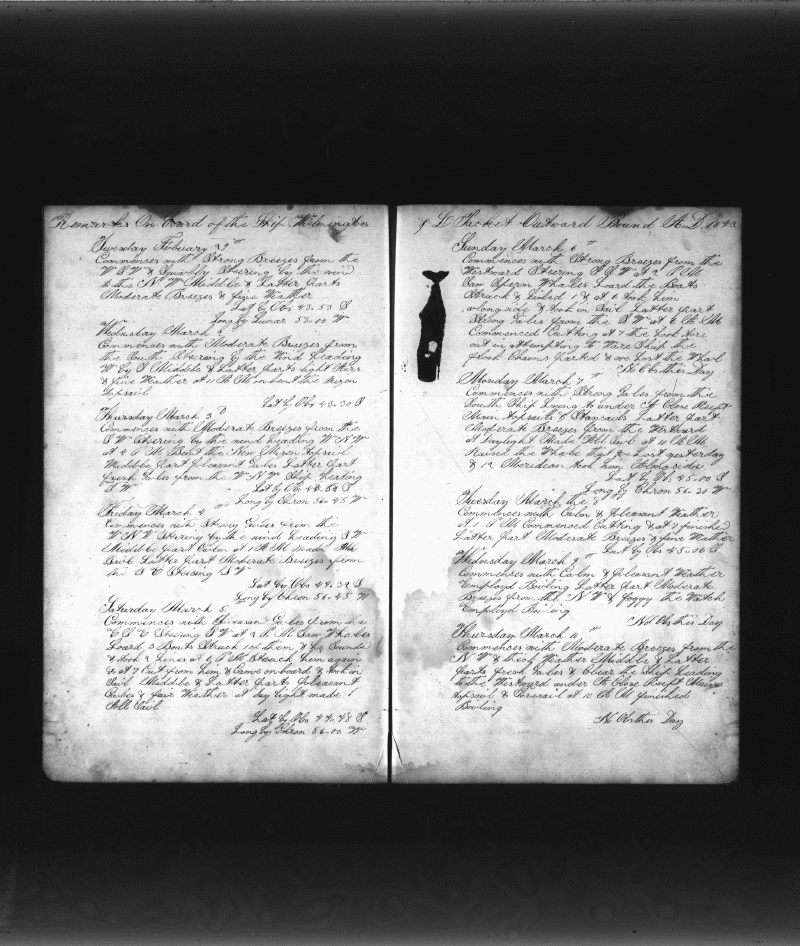 Remarks On board of the Ship Wilmington
Tuesday Febuary 29th
Commences with Strong Breezes from the
W S W & Squally Steering by the wind
to the N W Middle & Latter Parts
Moderate Breezes & fine Weather
Lat by Obs 43-53 S
Long by Lunar 53-00 W
Wednesday March 2
Commences with Moderate Breezes from
the South Steering by the Wind Heading
W by S Middle & Latter Parts light Airs
& fine Weather at 11 A M unbent the Mizen
topsail
Lat by Obs 43-30 S
Thursday March 3d
Commences with Moderate Breezes from the
S W Steering by the wind heading W N W
at 4 P M Bent the New Mizen topsail
Middle Part Pleasant Gales Latter Part
fresh Gales from the W N W Ship Heading
S W Lat by Obs 43-
Long by Chron 56-45 W
Friday March 4th
Commences with Strong Gales from the
W N W Steering by the wind heading S W
Middle Part Calm at 1 A M made
Sail Latter Part Moderate Breezes from
the S E Steering S W
Lat by Obs 44-39 S
Long by Chron 56-45 W
Saturday March 5
Commences with Pleasant Gales from the
E S E Steering S W at 2 P M Saw Whales
Loard 3 Boats Struck 1 of them & he Sounded
& took 2 Lines at 6 P M Struck him again
& at 7 Cut from him & Came on board & took in
Sail Middle & Latter Parts Pleasant
Gales & fair Weather at day light made
Sail
Lat by Obs 44-48 S
Long by Chron 56-00 W
& L Packet Outward Bound A D 1842
Sunday March 6th
Commences with Strong Breezes from the
Westward Steering S S W at 2 P M
Saw Sperm Whales Loard the Boats
Struck & killed 1 & at 6 took him
alongside & took in Sail Latter Part
Strong Gales from the S W at 6 A M
Commenced Cutting at 7 the hook tore
out in attempting to Ware Ship the
fluke Chains Parted & we Lost the Whale
No Obs this Day
Monday March 7th
Commences with Strong Gales from the
South Ship Lying to under Close Reeft
Main topsail & Stansails Latter Part
Moderate Breezes from the Westward
at Daylight Made Sail at 10 A M
Raised the Whale that we Lost yesterday
& 12 Meridean took him Alongside
Lat by Obs 45-00 S
Long by Chron 56-30 W
Tuesday March the 8th
Commences with Calm & Pleasant Weather
at 1 P M Commenced Cutting & at 7 finished
Latter Part Moderate Breezes & fine Weather
Lat by Obs 45-00 S
Wednesday March 9th
Commences with Calm & Pleasant Weather
Employd Boiling Latter Part Moderate
Breezes from the N W & foggy the Watch
Employd Boiling
No Obs this Day
Thursday March
Commences with Moderate Breezes from the
N W & thick Weather Middle & Latter
Parts fresh Gales & Clear the Ship Heading
to the Westward under Close Reeft Main
topsail & Foresail at 10 A M finished
Boiling
No Obs this Day